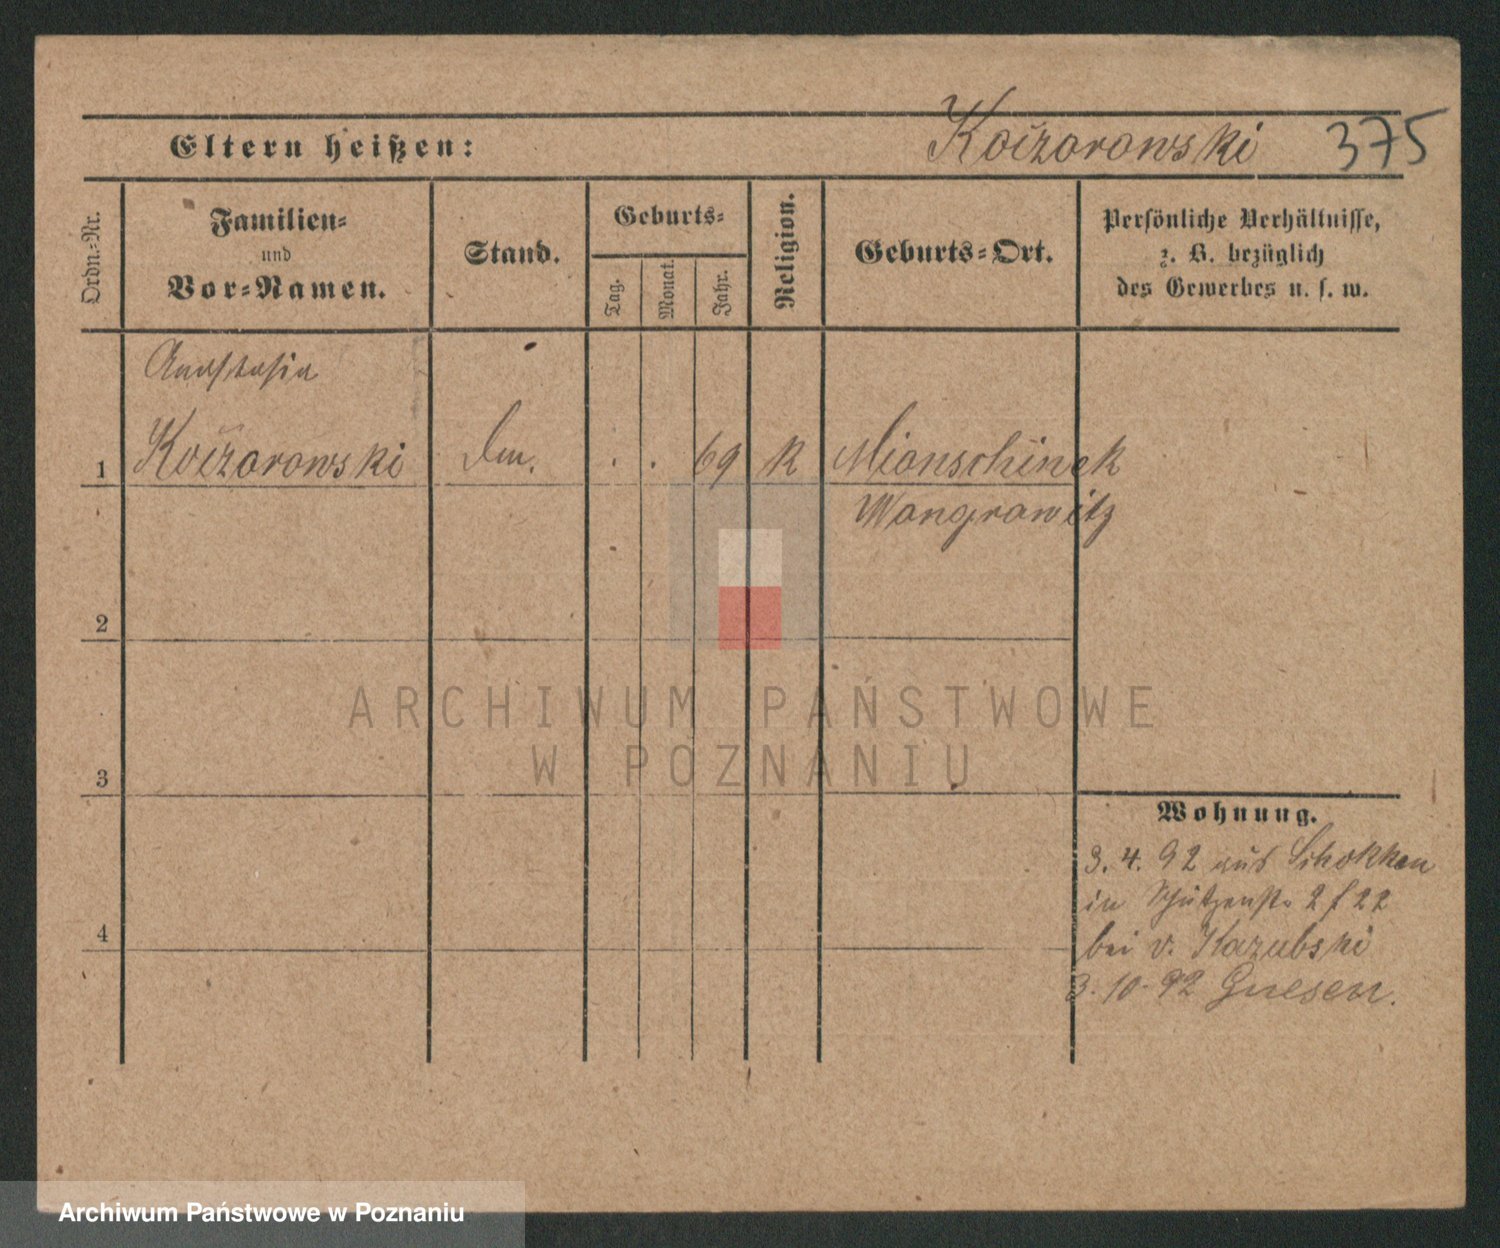 Eltern heißen:
Koiżorowski 375
Ordn.=Nr.
Familien=
und
Vor=Namen.
Stand.
Geburts=
Tag.
Monat.
Jahr.
Religion.
Geburts=Ort.
Persönliche Verhältnisse,
z. B. bezüglich
des Gewerbes u. s. w.
Anastasia
1 Koiżorowski . . 69 K Mionschinek
Wongrowitz
2
3
4
Wohnung.
3. 4. 92 aus Schokken
in Schützenstr 22
bei v. Kazubski
3. 10. 92 Gnesen.
ARCHIWUM PAŃSTWOWE
W POZNANIU
Archiwum Państwowe w Poznaniu